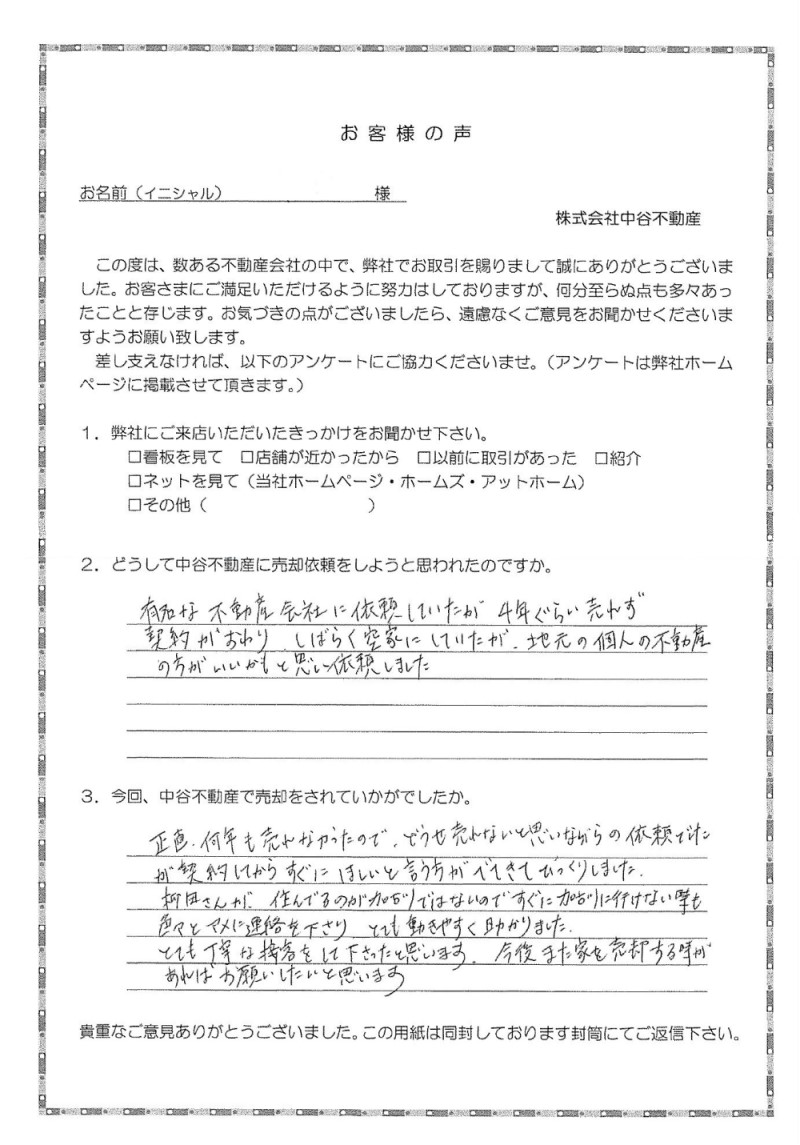 お客様の声
お名前（イニシャル） 様
株式会社中谷不動産
この度は、数ある不動産会社の中で、弊社でお取引を賜りまして誠にありがとうございま
した。お客さまにご満足いただけるように努力はしておりますが、何分至らぬ点も多々あっ
たことと存じます。お気づきの点がございましたら、遠慮なくご意見をお聞かせくださいま
すようお願い致します。
差し支えなければ、以下のアンケートにご協力くださいませ。（アンケートは弊社ホーム
ページに掲載させて頂きます。）
１．弊社にご来店いただいたきっかけをお聞かせ下さい。
□看板を見て □店舗が近かったから □以前に取引があった □紹介
□ネットを見て（当社ホームページ・ホームズ・アットホーム）
□その他（ ）
２．どうして中谷不動産に売却依頼をしようと思われたのですか。
有名な不動産会社に依頼していたが 4年ぐらい売れず
契約がおわり、しばらく空家にしていたが、地元の個人の不動産
の方がいいかもと思い依頼しました
３．今回、中谷不動産で売却をされていかがでしたか。
正直、何年も売れなかったので、どうせ売れないと思いながらの依頼でした
が契約してからすぐにほしいと言う方がでてきてびっくりしました。
さんが、住んでるのが加古川ではないのですぐに加古川に行けない事も
色々とマメに連絡を下さり とても動きやすく助かりました。
とても丁寧な接客をして下さったと思います。今後また家を売却する時が
あればお願いしたいと思います
貴重なご意見ありがとうございました。この用紙は同封しております封筒にてご返信下さい。